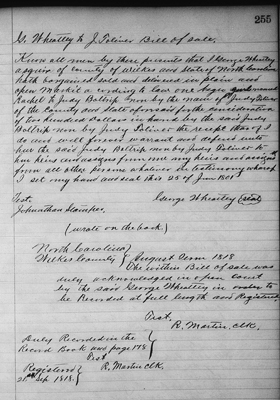 255
G. Wheatley to J. Toliver Bill of sale.
Know all men by these presents that I George Wheatley
of county of Wilkes and State of North Carolina
hath bargained sold and delivered in plain and
open Market a to law one Negro named
Rachel to Judy Boltrip now by the name of Judy Toliver
of the County and State aforesaid for the consideration
of two hundred Dollars in hand by the said Judy
Boltrip now by Judy Toliver the receipt thereof I
do and will forever warrant and defend unto
her the said Judy Boltrip now by Judy Toliver to
her heirs and assigns from me my heirs and assigns &
from all other persons whatever in testimony whereof
I set my hand and seal this 28 of June 1801
Test. George Wheatley (seal)
Johnathan Stamper.
(wrote on the back.)
North Carolina
Wilkes County August Term 1818
The within Bill of sale was
duly acknowledged in open Court
by the said George Wheatley in order to
be Recorded at full length and Registered
Test.
R. Martin, Clk.
Duly Recorded in the
Record Book and page 178
Test
R. Martin Clk.
Registered
Sep 1818.